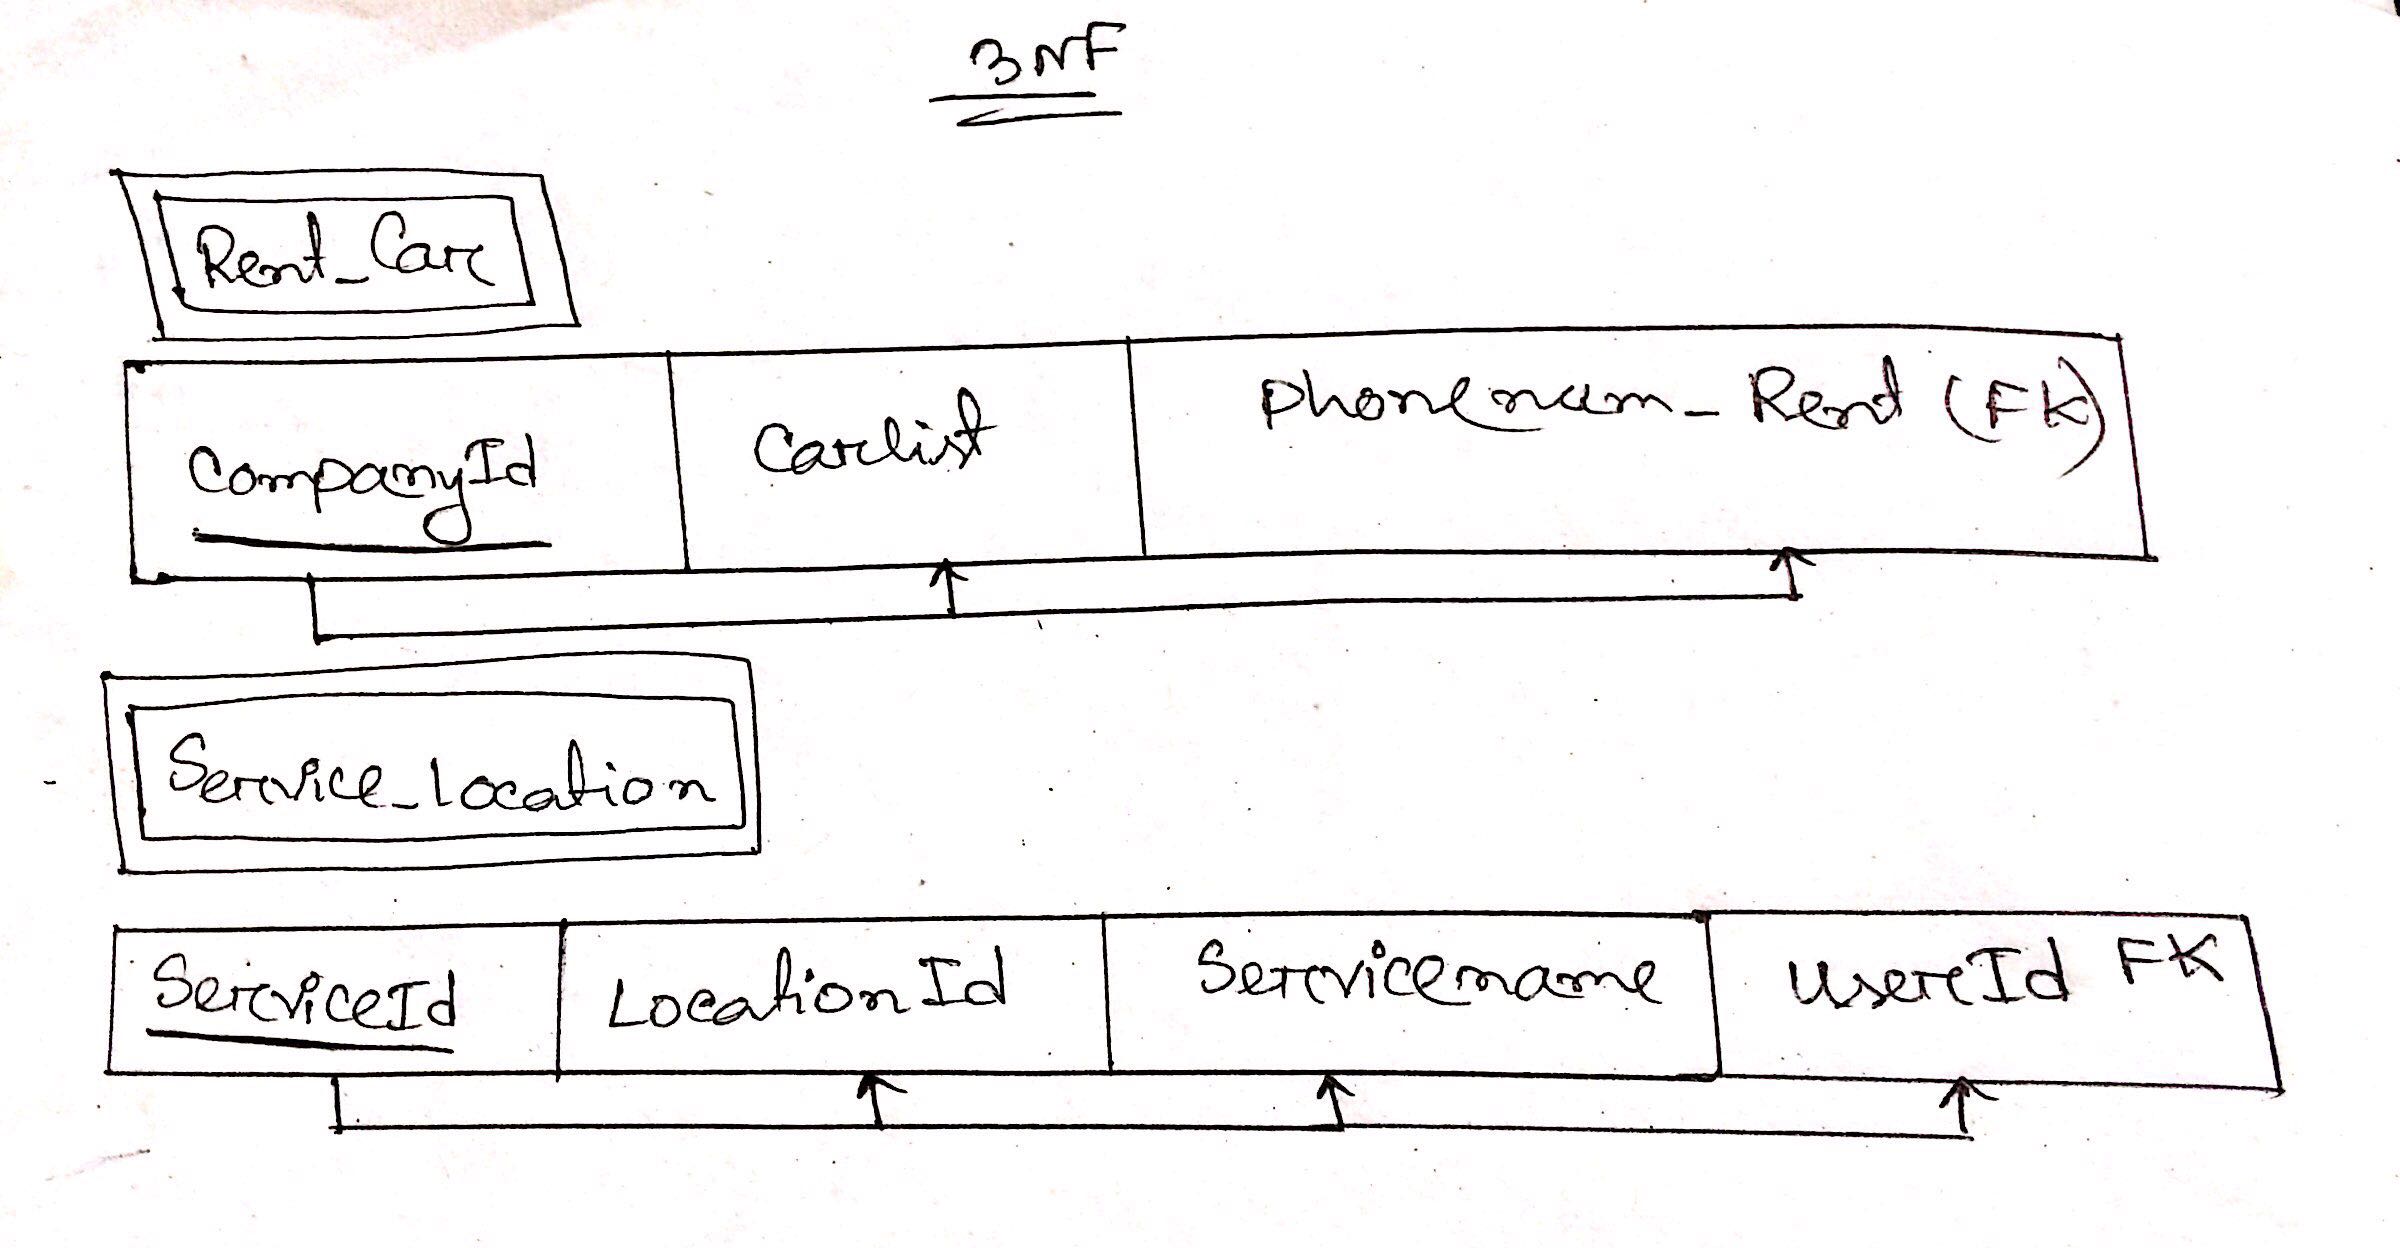 3NF
Rent_Car
CompanyId Carlist Phonenum_Rent (FK)
Service_Location
ServiceId LocationId Servicename UserId FK